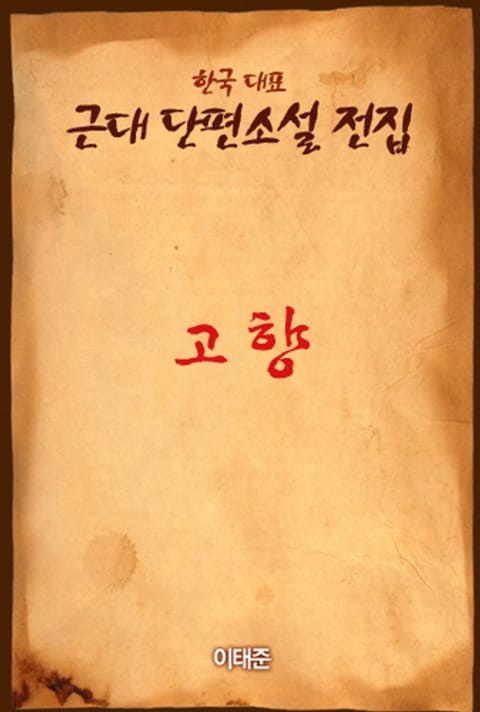 한국 대표
근대 단편소설 전집
고향
이태준